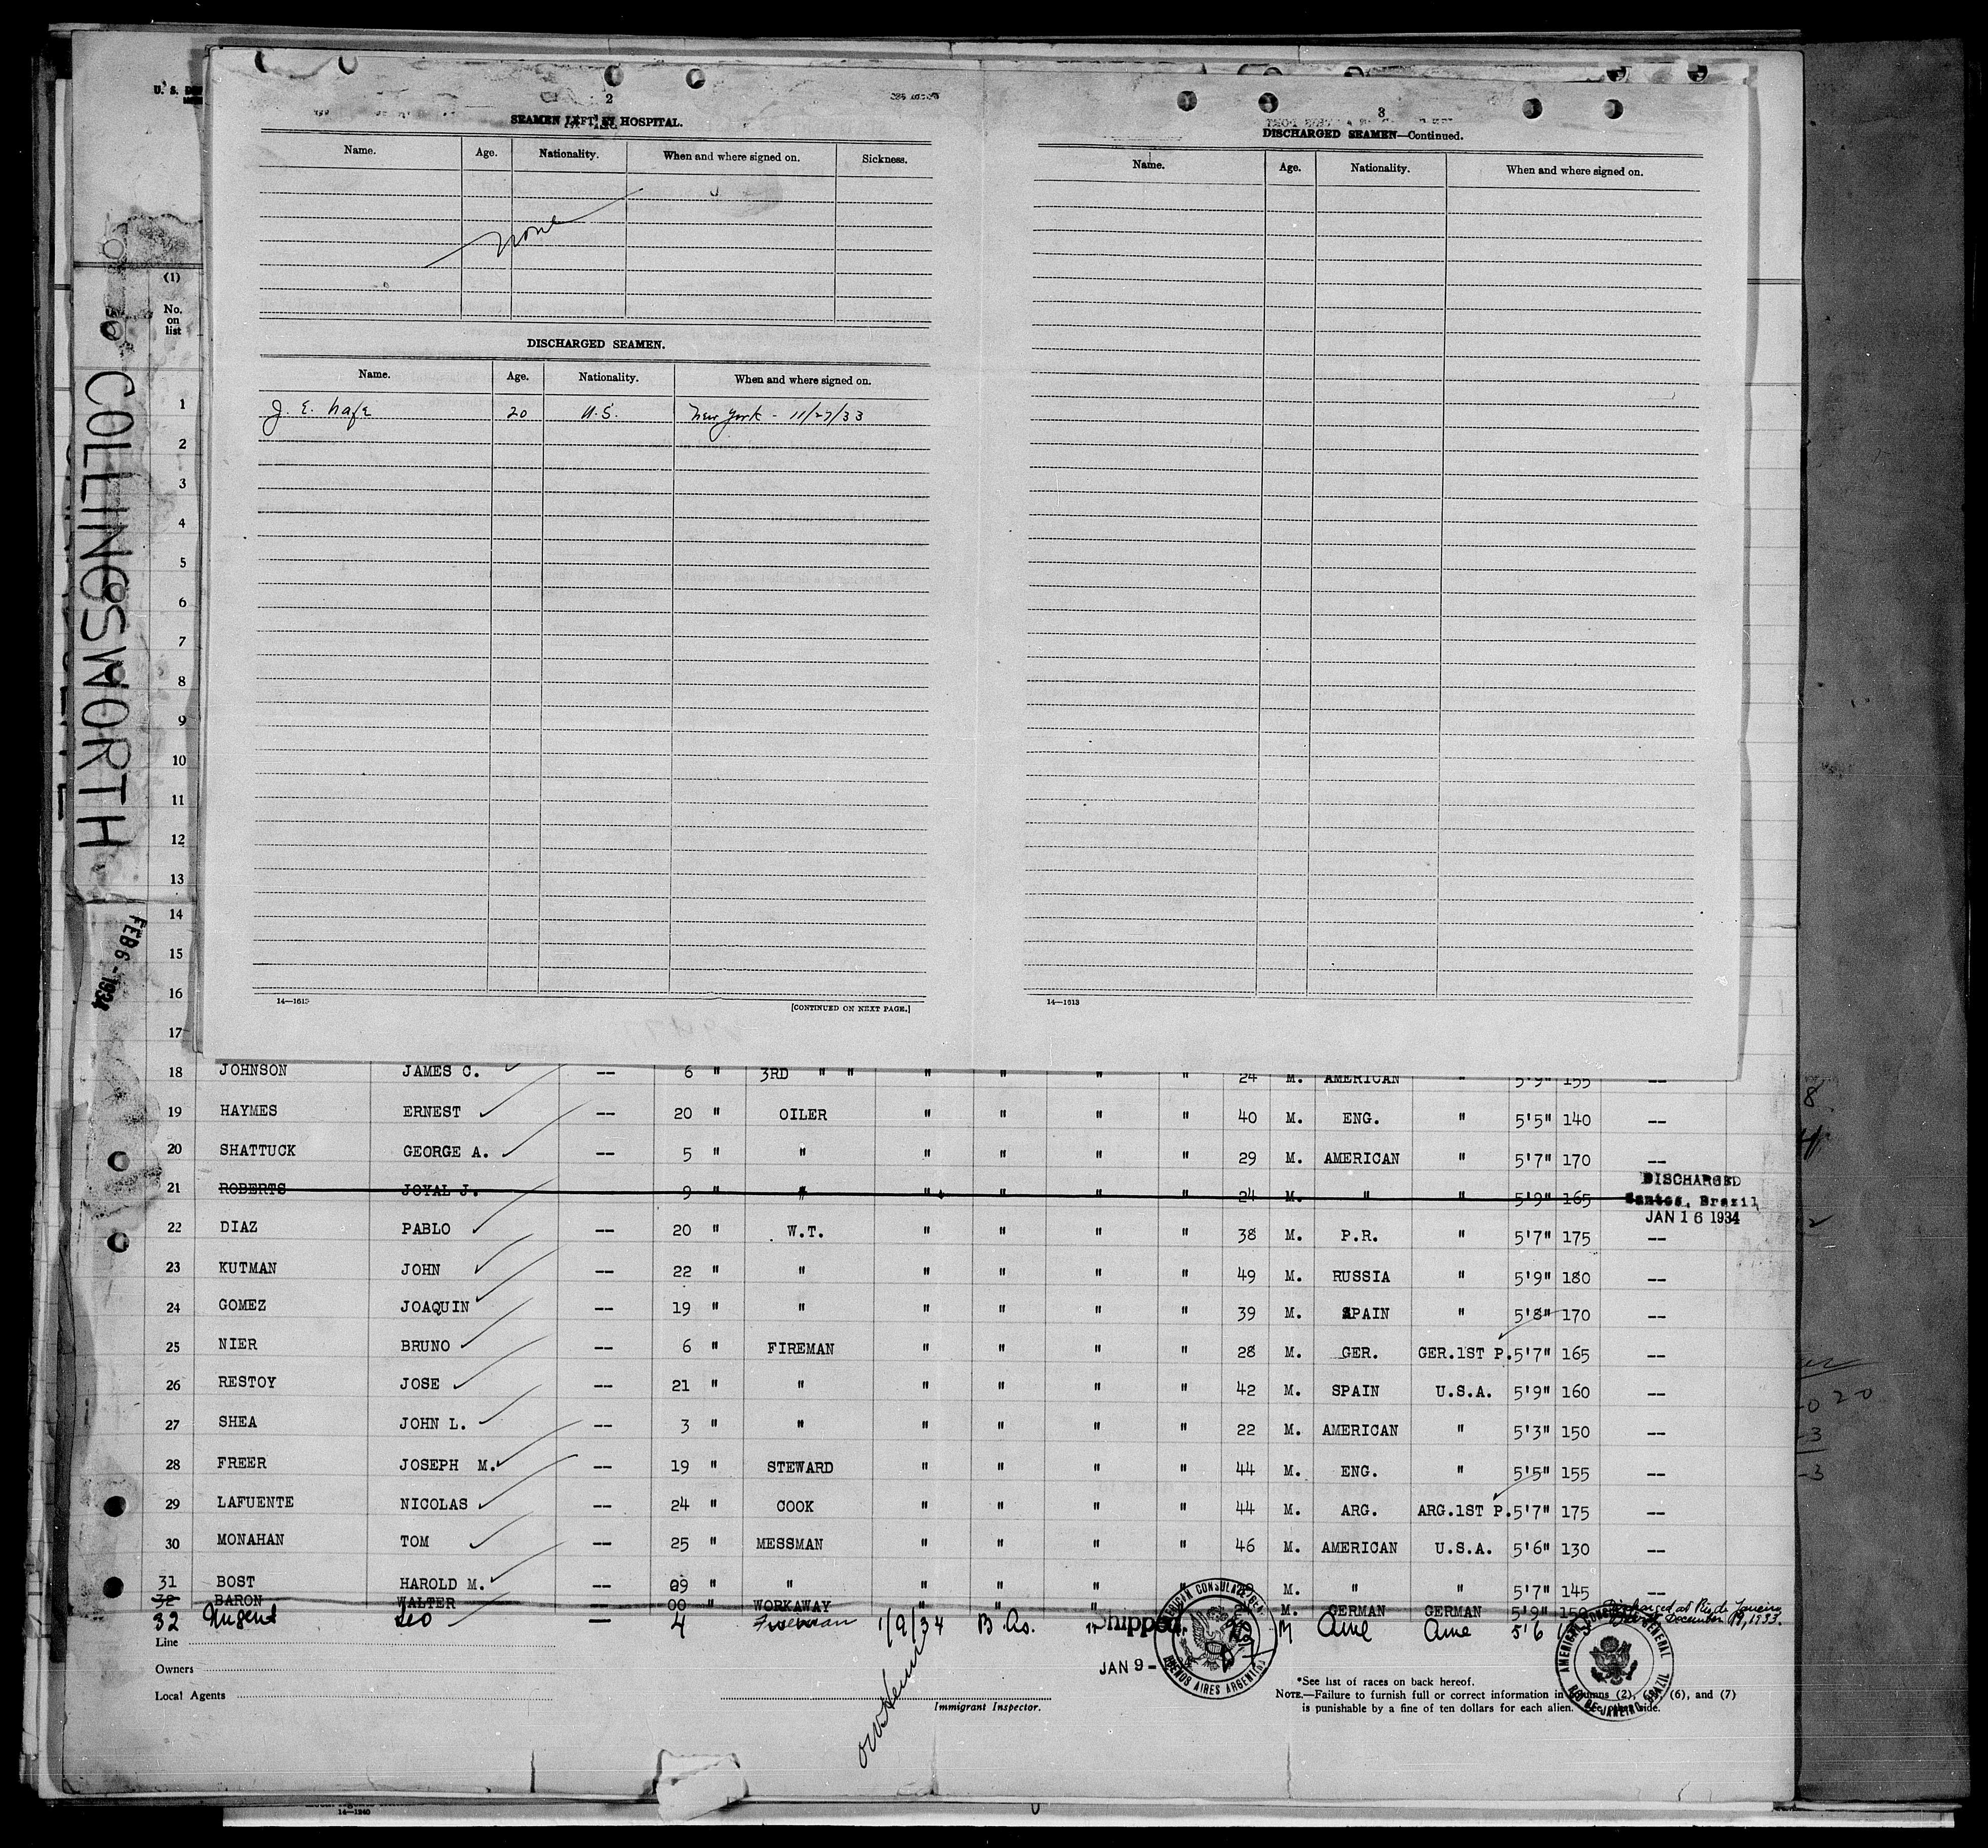 U. S.
2
SEAMEN LEFT IN HOSPITAL.
Name. Age. Nationality. When and where signed on. Sickness.
none
DISCHARGED SEAMEN.
Name. Age. Nationality. When and where signed on.
J. E. 20 U.S. New York - 11/27/33
14—1613
[CONTINUED ON NEXT PAGE.]
3
DISCHARGED SEAMEN—Continued.
Name. Age. Nationality. When and where signed on.
14—1613
COLLINGSWORTH
FEB 6 - 1934
(1)
No.
on
list
1
2
3
4
5
6
7
8
9
10
11
12
13
14
15
16
17
18 JOHNSON JAMES C. -- 6 " 3RD " " " " " " 24 M. AMERICAN " 5'9" 155 --
19 HAYMES ERNEST -- 20 " OILER " " " " 40 M. ENG. " 5'5" 140 --
20 SHATTUCK GEORGE A. -- 5 " " " " " " 29 M. AMERICAN " 5'7" 170 --
21 ROBERTS JOYAL J. 9 " " " " " " 24 M. " " 5'9" 165 DISCHARGED
Santos, Brazil
JAN 16 1934
22 DIAZ PABLO -- 20 " W.T. " " " " 38 M. P.R. " 5'7" 175 --
23 KUTMAN JOHN -- 22 " " " " " " 49 M. RUSSIA " 5'9" 180 --
24 GOMEZ JOAQUIN -- 19 " " " " " " 39 M. SPAIN " 5'8" 170 --
25 NIER BRUNO -- 6 " FIREMAN " " " " 28 M. GER. GER.1ST P. 5'7" 165 --
26 RESTOY JOSE -- 21 " " " " " " 42 M. SPAIN U.S.A. 5'9" 160 --
27 SHEA JOHN L. -- 3 " " " " " " 22 M. AMERICAN " 5'3" 150 --
28 FREER JOSEPH M. -- 19 " STEWARD " " " " 44 M. ENG. " 5'5" 155 --
29 LAFUENTE NICOLAS -- 24 " COOK " " " " 44 M. ARG. ARG.1ST P. 5'7" 175 --
30 MONAHAN TOM -- 25 " MESSMAN " " " " 46 M. AMERICAN U.S.A. 5'6" 130 --
31 BOST HAROLD M. -- 09 " " " " " " M. " " 5'7" 145 --
32 BARON WALTER -- 00 " WORKAWAY " " " M. GERMAN GERMAN 5'9" 150 Discharged at Rio de Janeiro
Brazil December 19, 1933.
32 Nugent Leo — 4 Fireman 1/9/34 B. As. " Shipped. M Ame Ame 5'6
JAN 9 -
AMERICAN CONSULATE GEN.
BUENOS AIRES ARGENTINA
AMERICAN CONSULATE GENERAL
RIO DE JANEIRO, BRAZIL
Line
Owners
Local Agents
Immigrant Inspector.
*See list of races on back hereof.
NOTE.—Failure to furnish full or correct information in columns (2), (6), and (7)
is punishable by a fine of ten dollars for each alien. See other side.
14—1240